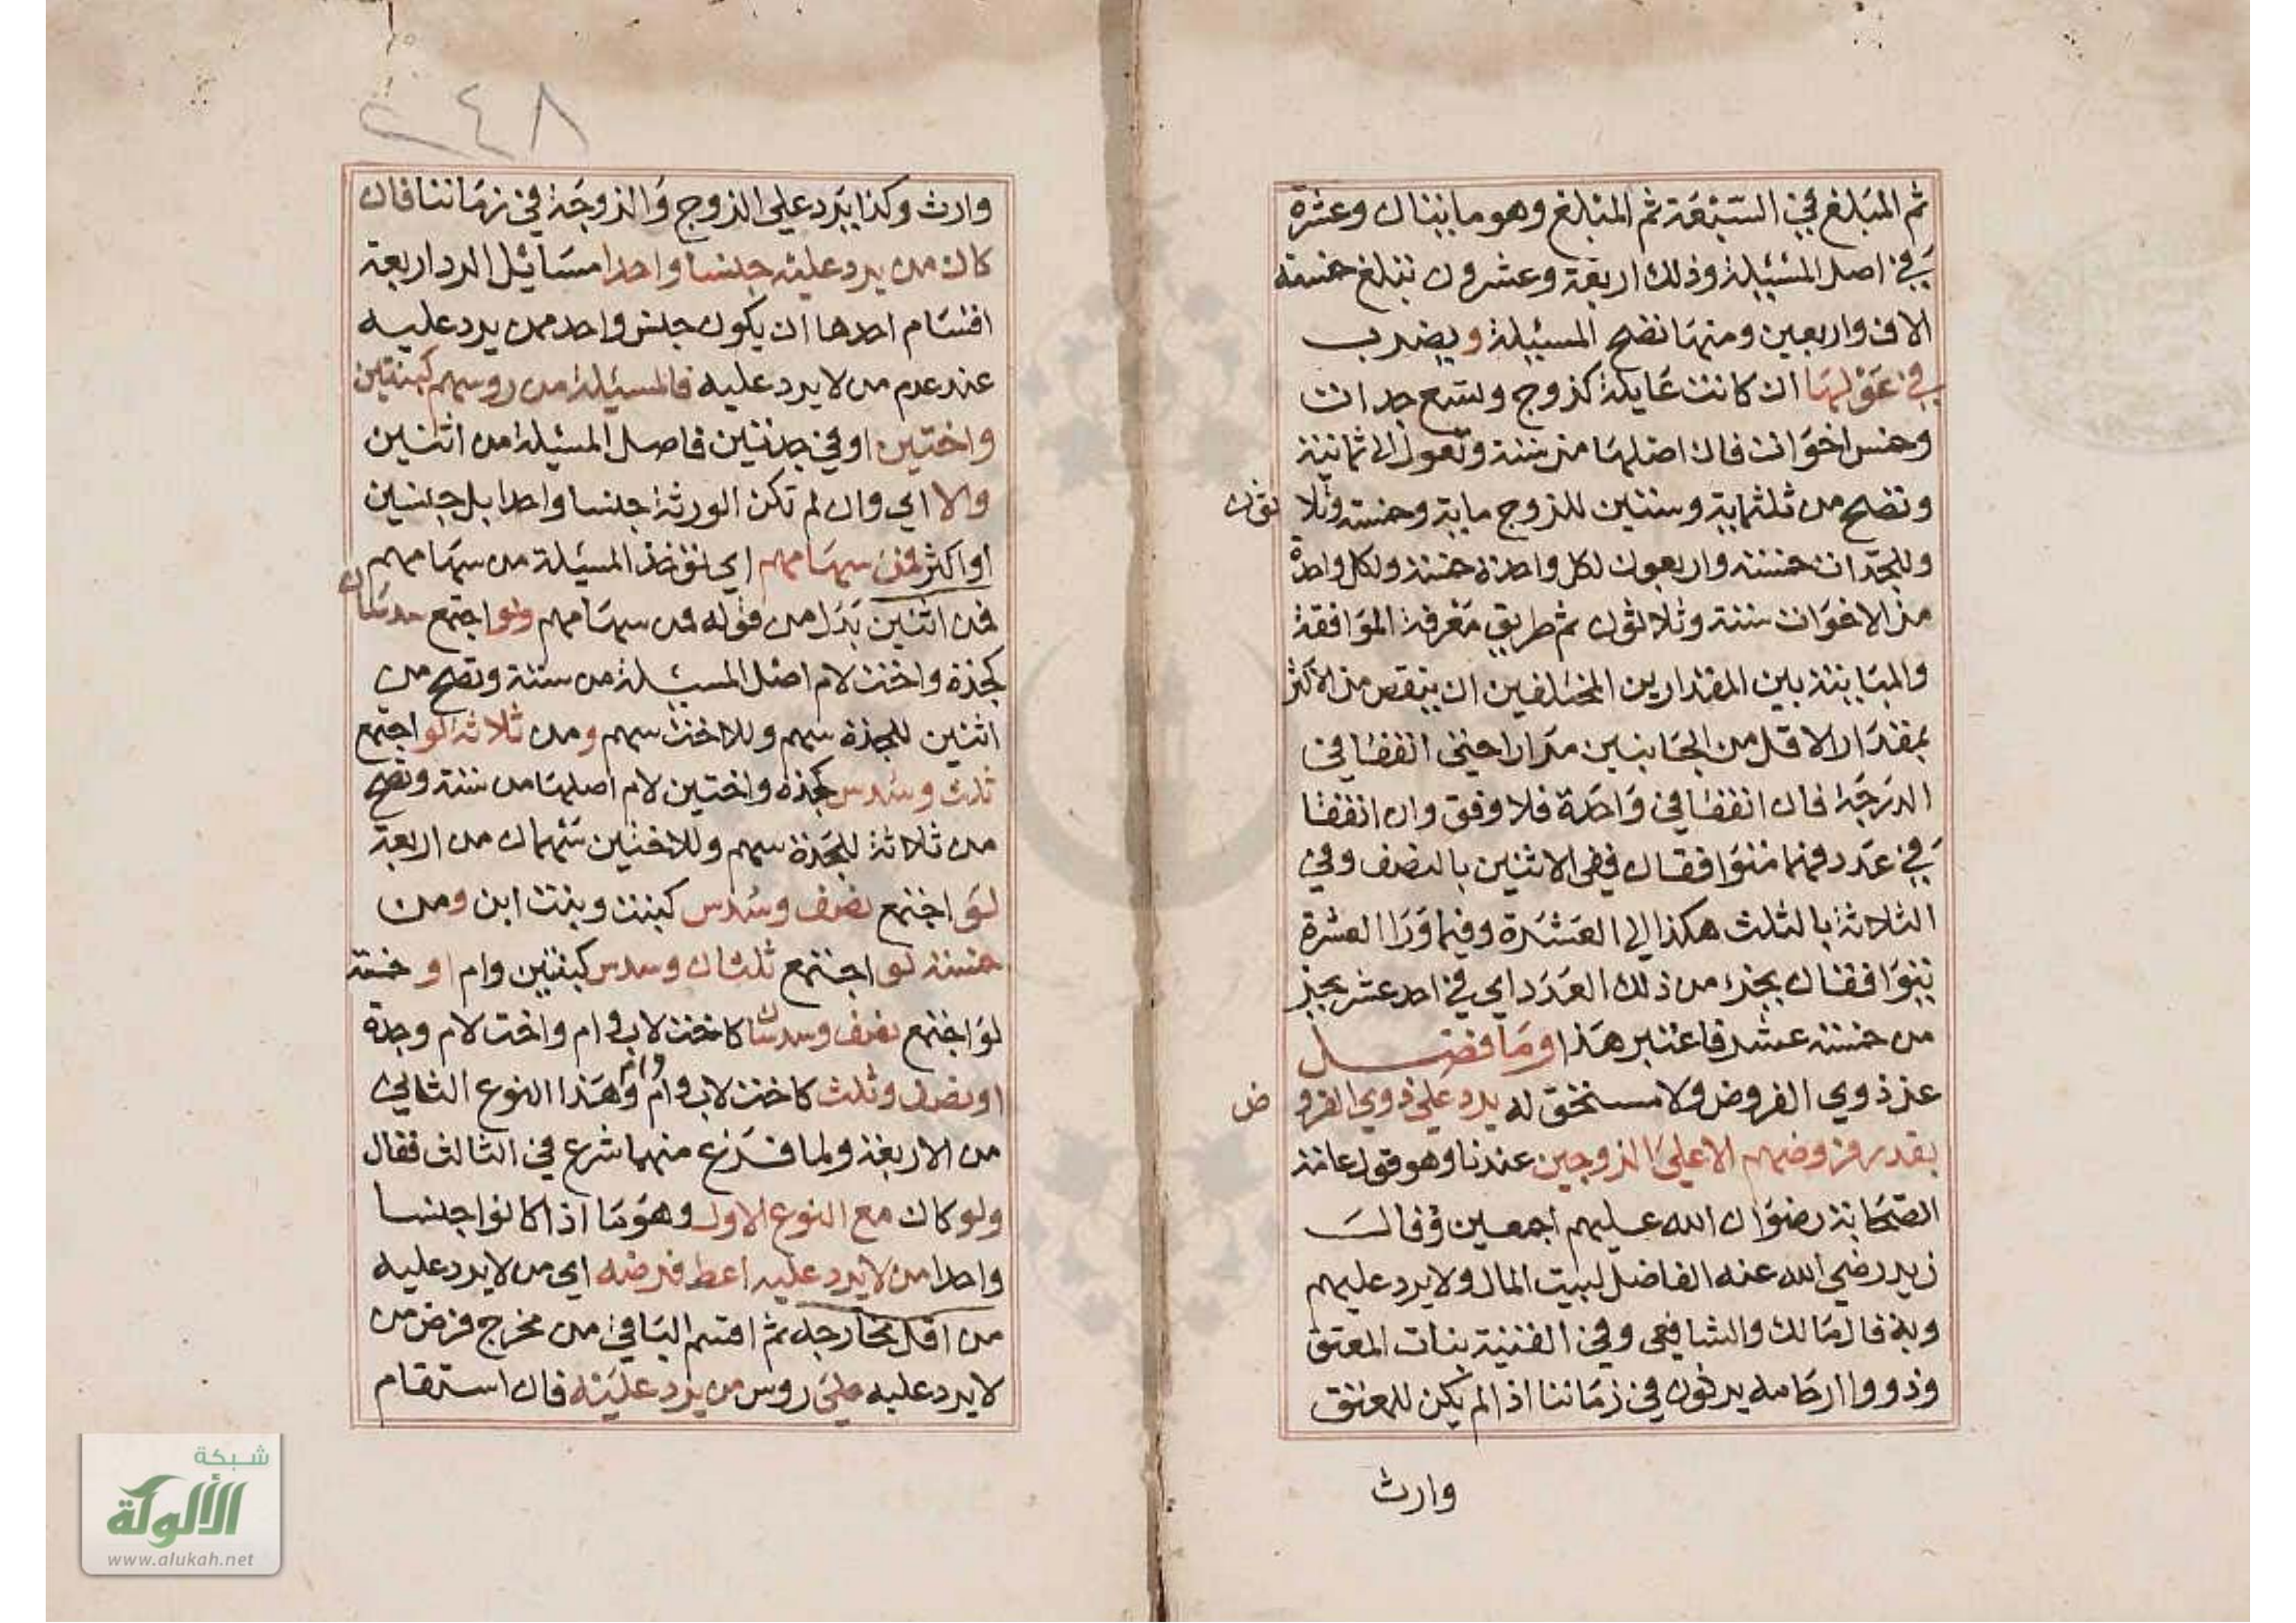 ثم المبلغ في السبعة ثم المبلغ وهو مايتان وعشرة
في اصل المسئيلة وذلك اربعة وعشرون تبلغ خمسة
الاف واربعين ومنها تصح المسئيلة ويضرب
في عولها ان كانت عايلة كزوج وتسع جدات
وخمس اخوات فان اصلها من ستة وتعول الى ثمانية
وتصح من ثلثماية وستين للزوج ماية وخمسة وثلا ثون
وللجدات خمسة واربعون لكل واحدة خمسة ولكل واحدة
من الاخوات ستة وثلاثون ثم طريق معرفة الموافقة
والمباينة بين المقدارين المختلفين ان ينقص من الاكثر
بمقدار الاقل من الجانبين مرارا حتى اتفقا في
الدرجة فان اتفقا في واحدة فلا وفق وان اتفقا
في عدد فهما متوافقان ففي الاثنين بالنصف وفي
الثلاثة بالثلث هكذا الى العشرة وفيما ورا العشرة
يتوافقان بجزء من ذلك العدد اي في احد عشر بجز
من خمسة عشر فاعتبر هذا وما فضل
عن ذوي الفروض ولا مستحق له يرد على ذوي الفرو ض
بقدر فروضهم الا على الزوجين عندنا وهو قول عامة
الصحابة رضوان الله عليهم اجمعين وقال
زيد رضي الله عنه الفاضل لبيت المال ولا يرد عليهم
وبه قال مالك والشافعي وفي القنية بنات المعتق
وذووا ارحامه يرثون في زماننا اذا لم يكن للمعتق
وارث
٢٤٨
وارث وكذا يرد على الزوج والزوجة في زماننا فان
كان من يرد عليه جنسا واحدا مسائيل الرد اربعة
اقسام احدها ان يكون جنس واحد ممن يرد عليه
عند عدم من لا يرد عليه فالمسئيلة من روسهم كبنتين
واختين او في جدتين فاصل المسئيلة من اثنين
والا اي وان لم تكن الورثة جنسا واحدا بل جنسين
او اكثر فمن سهامهم اي تؤخذ المسئيلة من سهامهم
فمن اثنين بدل من قوله فمن سهامهم ولو اجتمع سدسان
كجدة واخت لام اصل المسئيلة من ستة وتصح من
اثنين للجدة سهم وللاخت سهم ومن ثلاثة لو اجتمع
ثلث وسدس كجدة واختين لام اصلها من ستة وتصح
من ثلاثة للجدة سهم وللاختين سهمان من اربعة
لو اجتمع نصف وسدس كبنت وبنت ابن ومن
خمسة لو اجتمع ثلثان وسدس كبنتين وام او خمسة
لو اجتمع نصف وسدسان كاخت لاب وام واخت لام وجدة
او نصف وثلث كاخت لاب وام وام وهذا النوع الثاني
من الاربعة ولما فرغ منهما شرع في الثالث فقال
ولو كان مع النوع الاول وهو ما اذا كانوا جنسا
واحدا من لا يرد عليه اعط فرضه اي من لا يرد عليه
من اقل مخارجه ثم اقسم الباقي من مخرج فرض من
لا يرد عليه على روس من يرد عليه فان استقام
شبكة
الألوكة
www.alukah.net